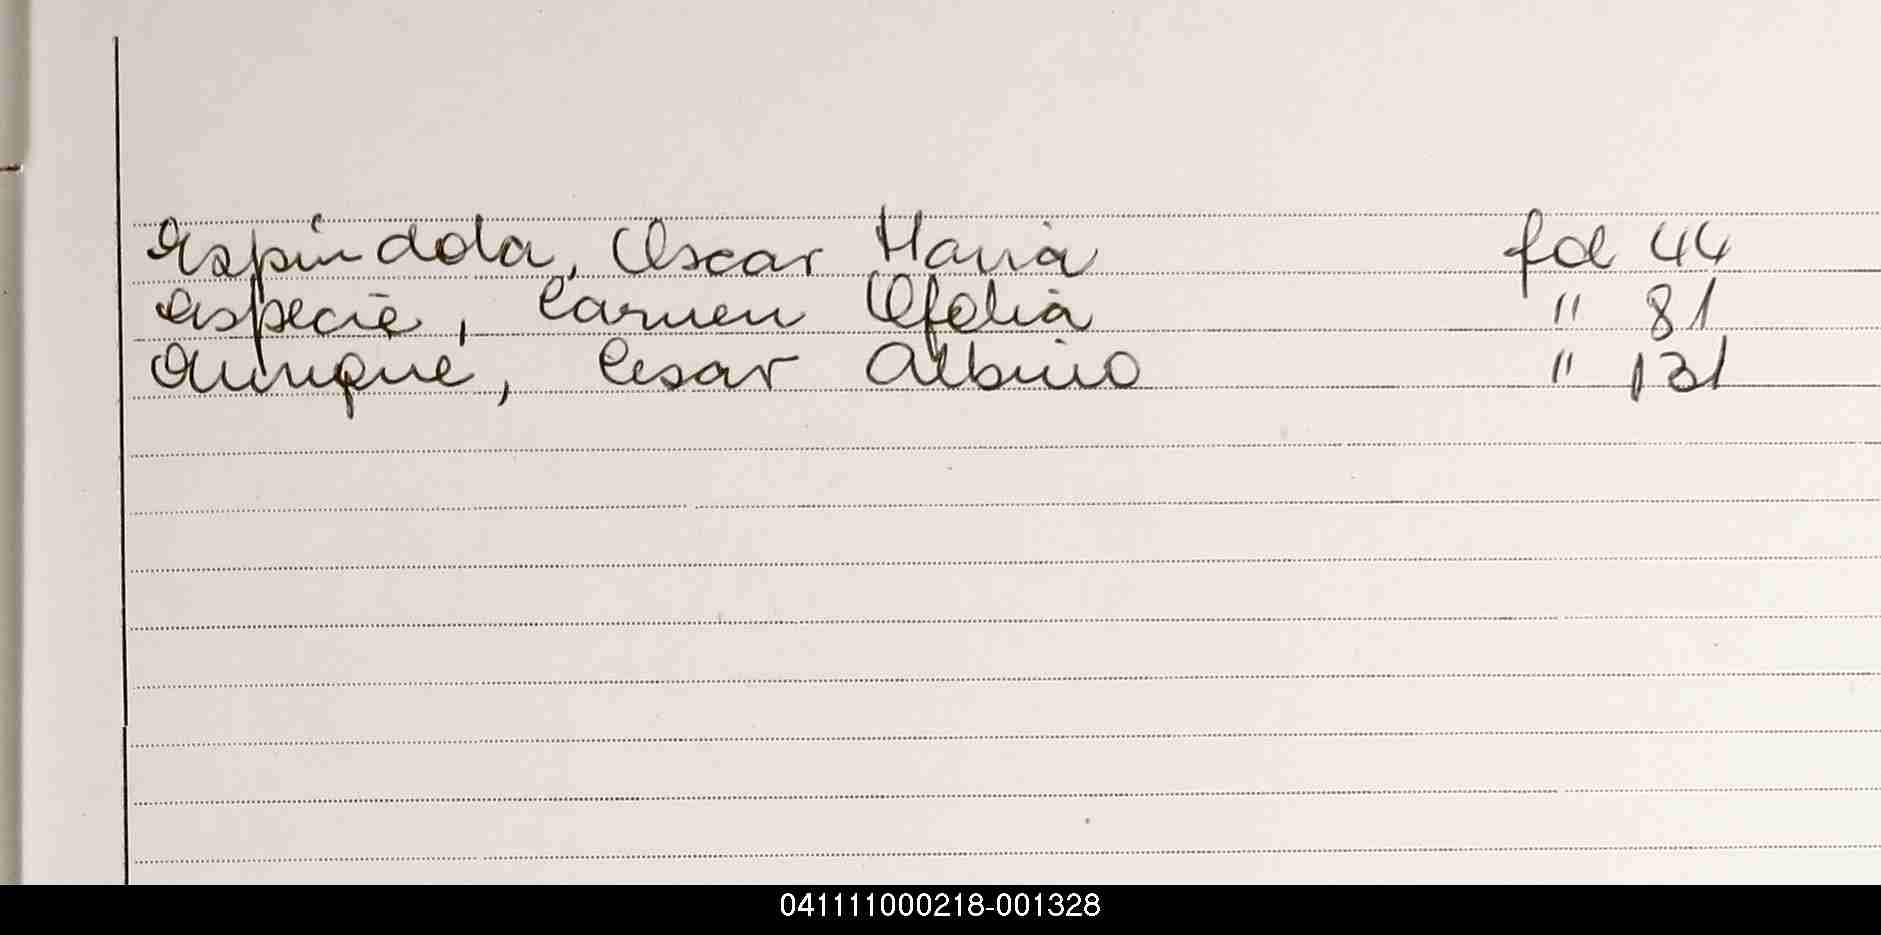 Espindola, Oscar Maria fol 44
Especie, Carmen Ofelia " 81
Cesar Albino " 131
041111000218-001328